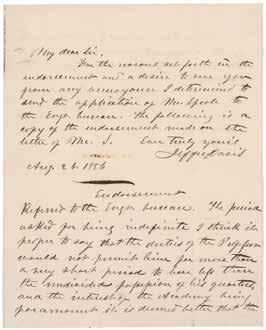 My dear Sir,
For the reasons set forth in the
endorsement and a desire to save you
from any annoyance I determined to
send the application of Mr. Sprole to
the Engr. bureau. The following is a
copy of the endorsement made on the
letter of Mr. S. Ever truly yours
Jeffn Davis
Aug. 26. 1856
Endorsement
Referred to the Engr bureau. The period
asked for being indefinite I think it
proper to say that the duties of the Professor
would not permit him for more than
a very short period to have less than
the undivided possession of his quarters,
and the interest of the Academy being
paramount it is deemed better that the